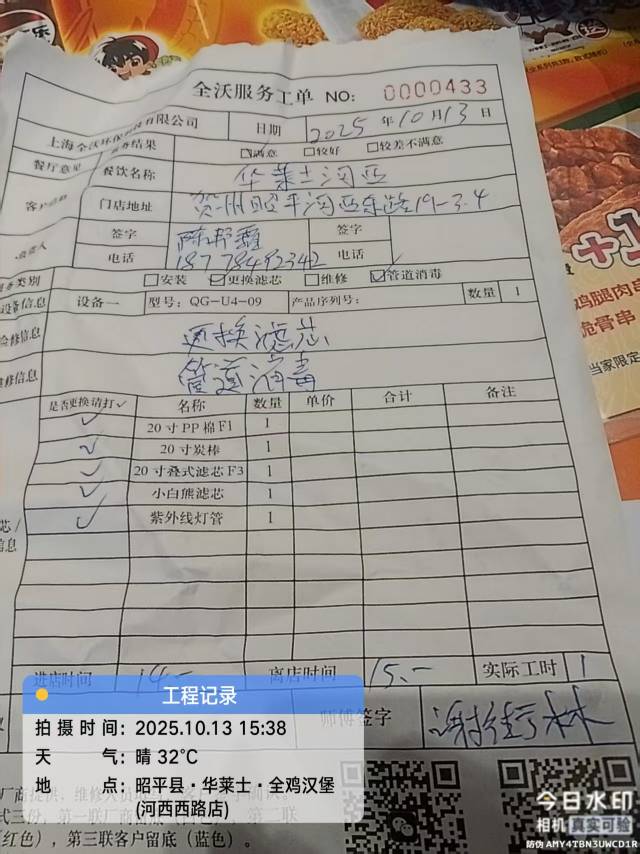 全沃服务工单 NO: 0000433
上海全沃环保科技有限公司 日期 2025 年 10 月 13 日
餐厅意见 服务结果 ☑满意 □较好 □较差不满意
餐饮名称 华莱士河西
门店地址 贺州昭平河西东路19-3.4
签字 签字
电话 18778492342 电话
服务类别 □安装 ☑更换滤芯 □维修 ☑管道消毒
设备信息 设备一 型号: QG-U4-09 产品序列号: 数量 1
检修信息 更换滤芯
维修信息 管道消毒
是否更换请打✓ 名称 数量 单价 合计 备注
✓ 20寸PP棉F1 1
✓ 20寸炭棒 1
✓ 20寸叠式滤芯F3 1
✓ 小白熊滤芯 1
✓ 紫外线灯管 1
进店时间 14- 离店时间 15.- 实际工时 1
师傅签字
工程记录
拍摄时间: 2025.10.13 15:38
天气: 晴 32℃
地点: 昭平县·华莱士·全鸡汉堡
(河西西路店)
(红色), 第三联客户留底(蓝色)。
今日水印
相机 真实可验
防伪 AMY4TBN3UWCD1R
鸡腿肉串
脆骨串